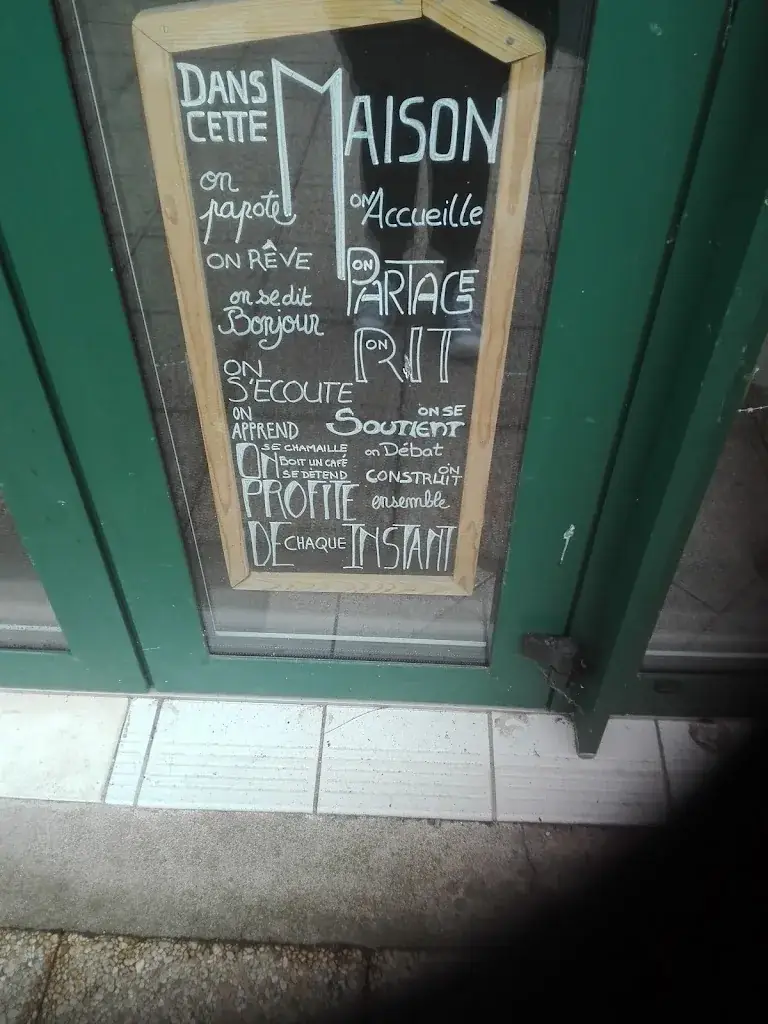 DANS
CETTE
MAISON
on
papote
ON Accueille
ON RÊVE
ON
PARTAGE
on se dit
Bonjour
ON
RIT
ON
S'ECOUTE
ON
APPREND
ON SE
SOUTIENT
ON
SE CHAMAILLE
BOIT UN CAFÉ
SE DÉTEND
on Débat
ON
CONSTRUIT
ensemble
PROFITE
DE CHAQUE INSTANT